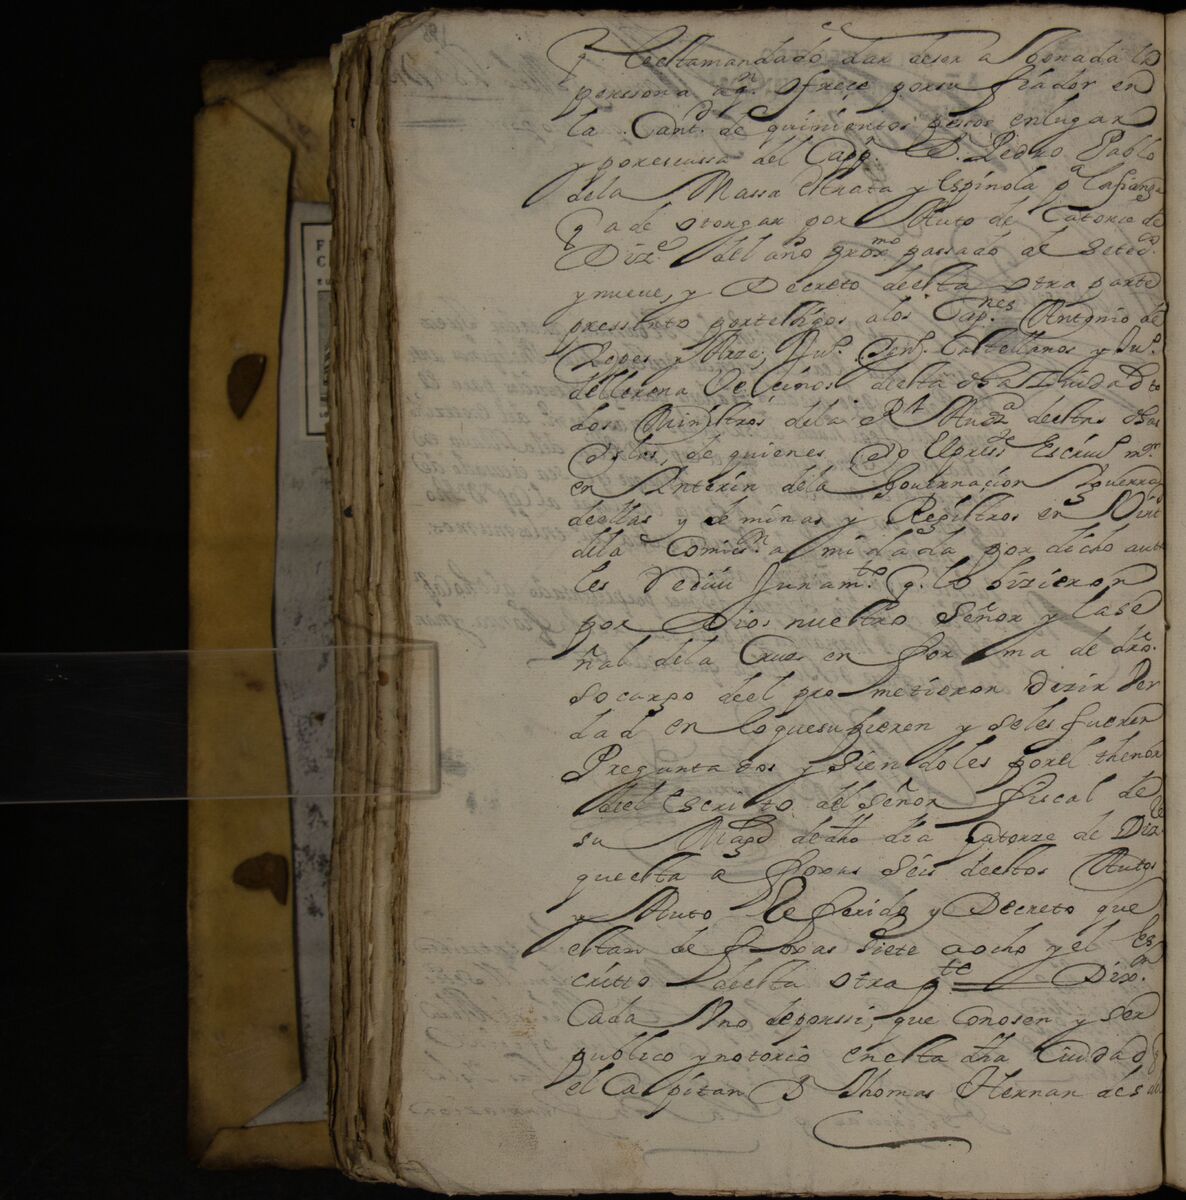 q. le esta mandado dar de ser abonada la
perssona a q.n ofreçe por su fiador en
la Cant.d de quinientos pesos en lugar
y por escussa del Cap.n D. Pedro Pablo
de la Massa estrata y Espinola p.a la fianza
q a de otorgar por Auto de Catorce de
Diz.e del año prox.mo passado de setec.os
y nueve, y Decreto de esta otra parte
pressento por testigos a los Cap.nes Antonio de
Lopes y Arze, Ju.o Castellanos y Ju.o
de llerena Vecinos de esta dha Ciudad to
dos Ministros de la R.l Auz.a de estas dhas
Islas, de quienes Yo El press.te Escriu.o m.or
en Interin de la Gouernacion y guerra
de ellas y de minas y Registros en Virt
de la Comiss.n a mi dada por dicho auto
les Reciui Juram.to q. lo hizieron
por Dios nuestro Señor y la se
ñal de la Cruz en forma de dro.
so cargo de el prometieron dezir Ver
dad en lo que supieren y se les fueren
Preguntados y siendoles por el thenor
del escripto del Señor fiscal de
su Mag.d de dho dia Catorze de Diz.e
que esta a foxas seis de estos Autos
y Auto Referido y Decreto que
estan de foxas siete a ocho y el es
critto de esta otra p.te Dix.on
Cada Vno de por ssi, que Conosen y ser
publico y notorio en esta dha Ciudad
el Capitan D Thomas Hernandes